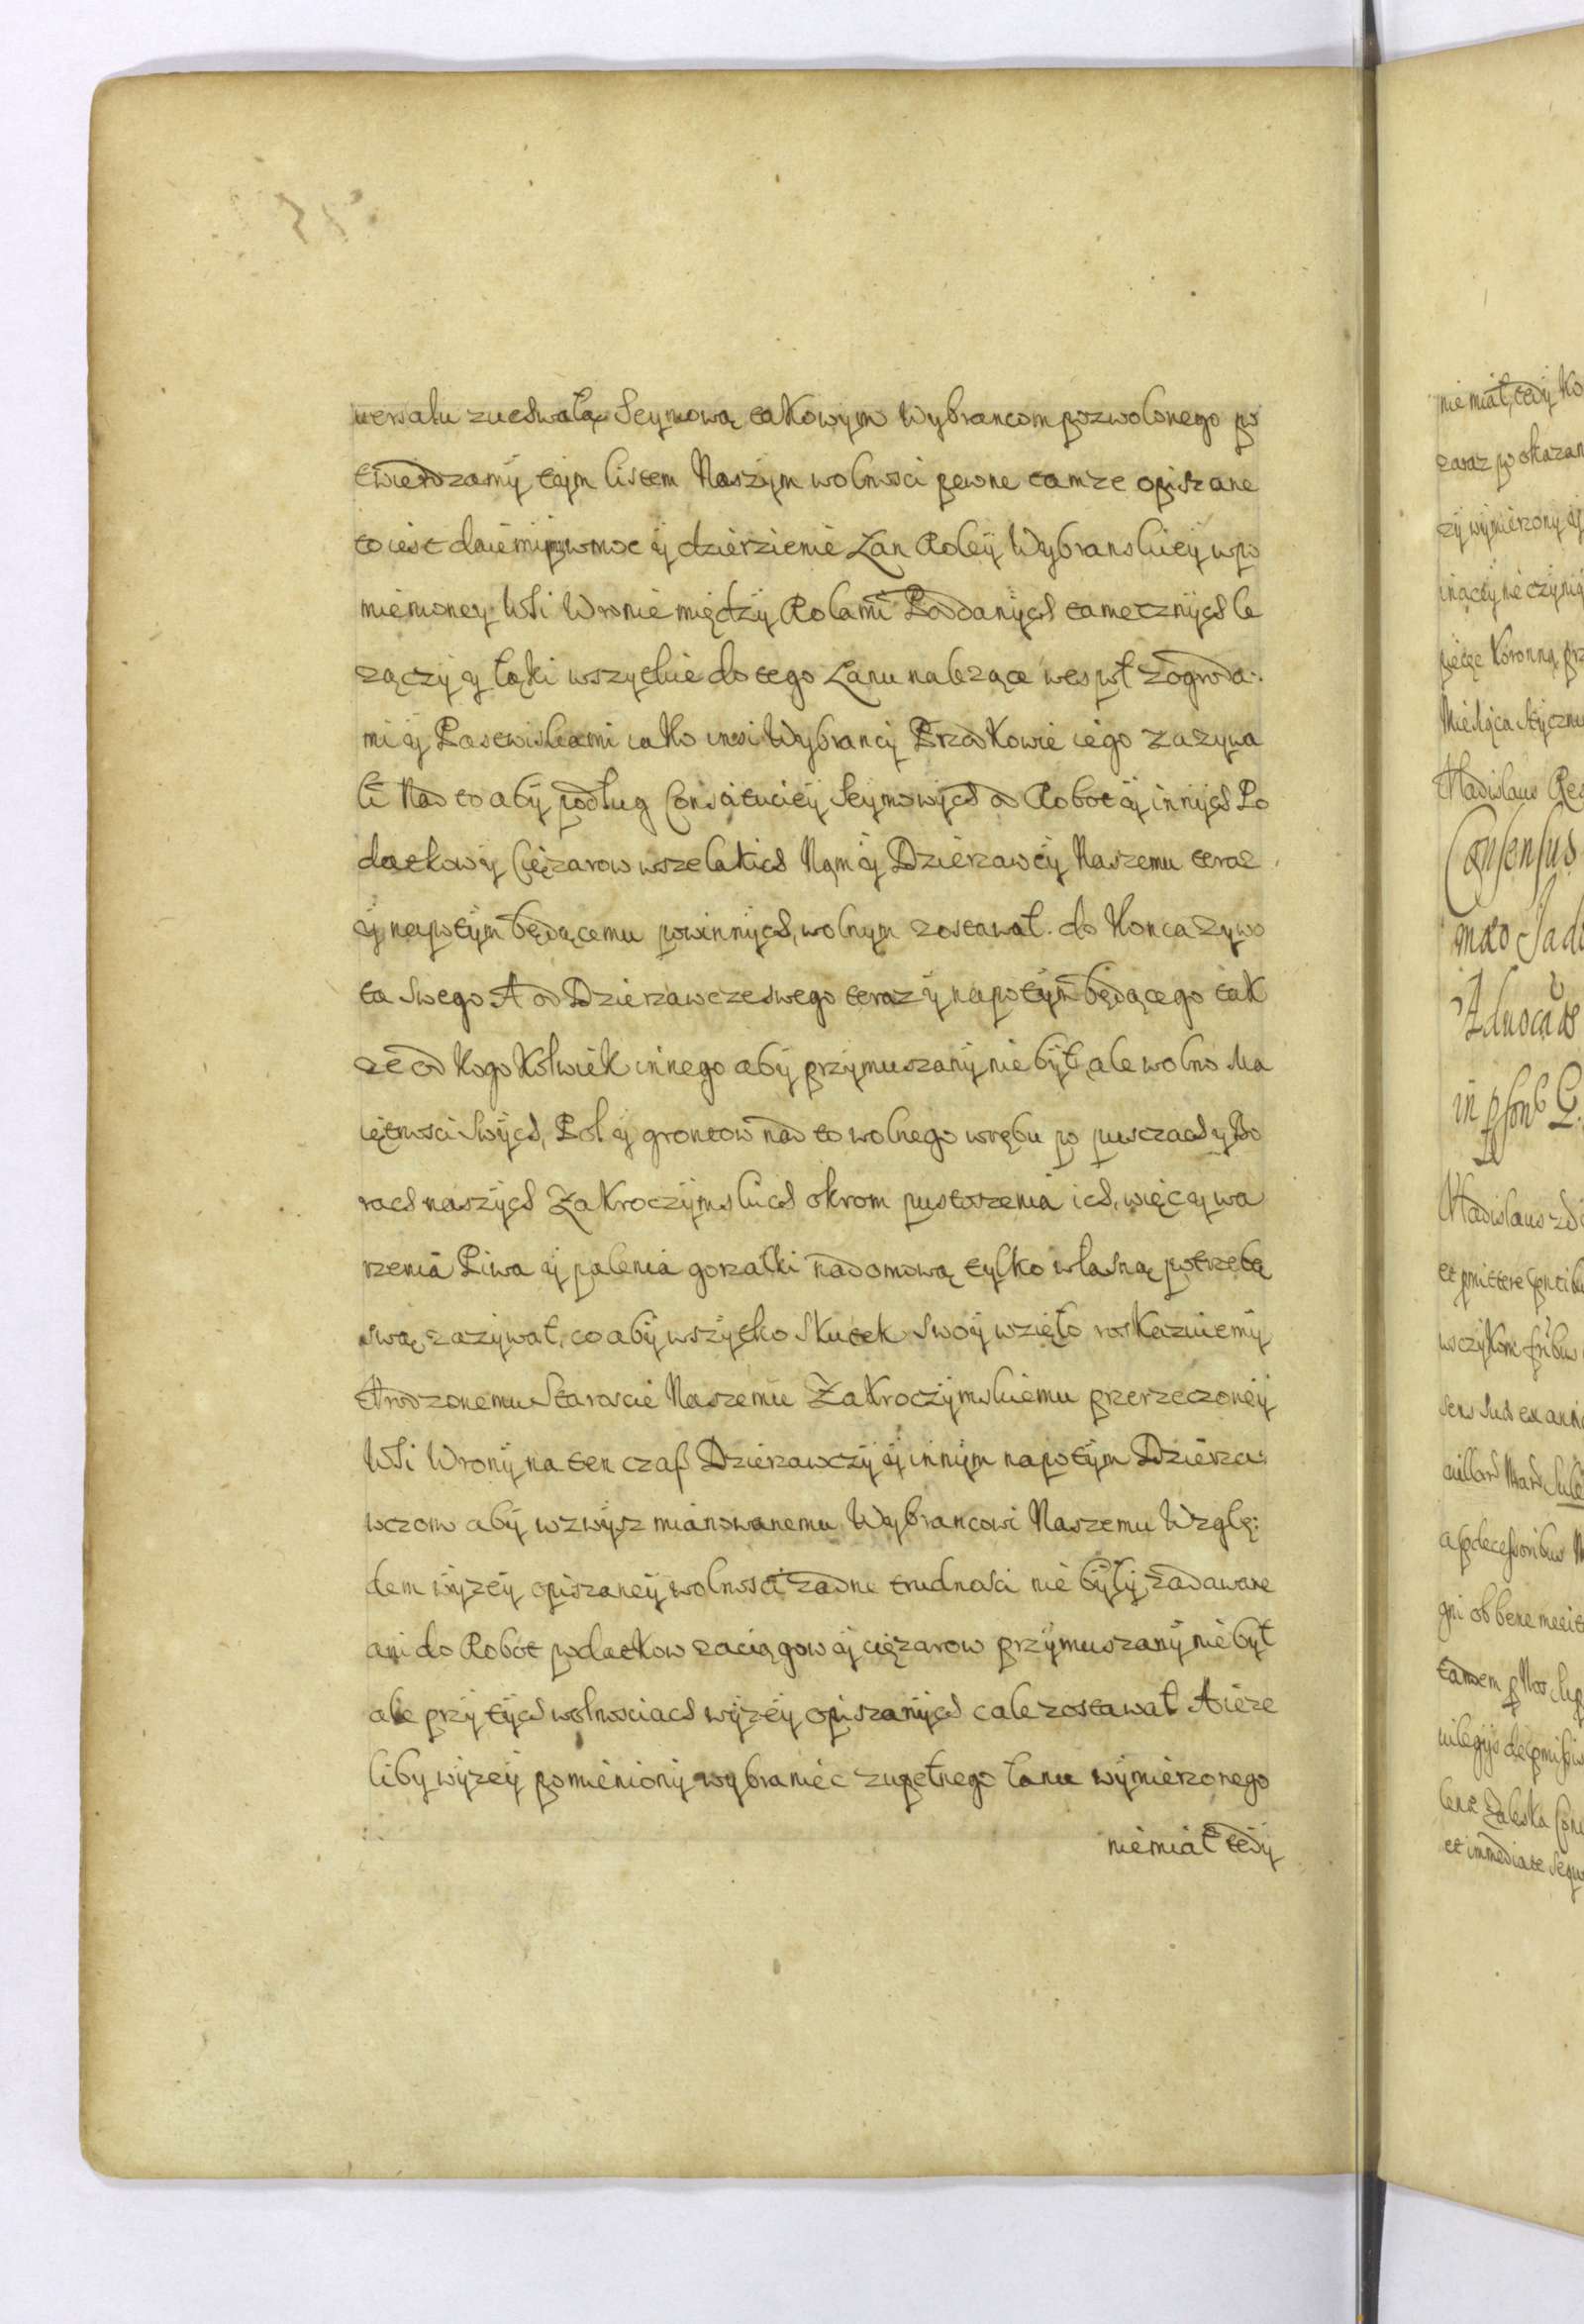 wersału zuchwałą Seymową takowym Wybrancom pozwolonego po
twierdzamy tym listem Naszym wolnosci pewne tamze opiszane
to iest daiemy w moc y dzierzenie Łan Roley Wybranskiey wpo
mienioney Wsi Wronie między Rolami Poddanych tamecznych le
zączy y łąki wszytkie do tego Łanu nalezące wespoł z ogroda:
mi y Pastwiskami iako insi Wybrancy Przodkowie iego zazywa
li Nad to aby podług Constituciey Seymowych od Robot y innych Po
datkow y Cięzarow wszelakich Nam y Dzierzawcy Naszemu teraz
y napotym będącemu powinnych, wolnym zostawał. do Konca Zywo
ta swego A od Dzierzawcze swego teraz y napotym będącego tak
ze od kogo kolwiek innego aby przymuszany nie był, ale wolno Ma
iętnosci swych, Pol y grontow nad to wolnego wrębu po pusczach y Bo
rach naszych Zakroczymskich okrom pustoszenia ich, więc y wa
rzenia Piwa y palenia gorzałki na domową tylko własną potrzebą
swą zazywał, co aby wszytko skutek swoy wzięło roskazuiemy
Urodzonemu Staroscie Naszemu Zakroczymskiemu przerzeczoney
Wsi Wrony na ten czaß Dzierzawczy y innym napotym Dzierza:
wczom aby wzwysz mianowanemu Wybrancowi Naszemu Wzglę:
dem wyzey opiszaney wolnosci zadne trudnosci nie były zadawane
ani do Robot podatkow zaciągow y ciązarow przymuszany nie był
ale przy tych wolnosciach wyzey opiszanych cale zostawał A ieze
liby wyzey pomieniony wybraniec zupełnego łanu wymierzonego
niemiał tedy
niemiał, tedy Ko
zaraz po okazan
zy wymierzony y
inaczy nie czynią
pieczęc Koronną prz
Miesiąca Styczn
Vladislaus Re
Consensus
in
Vladislaus